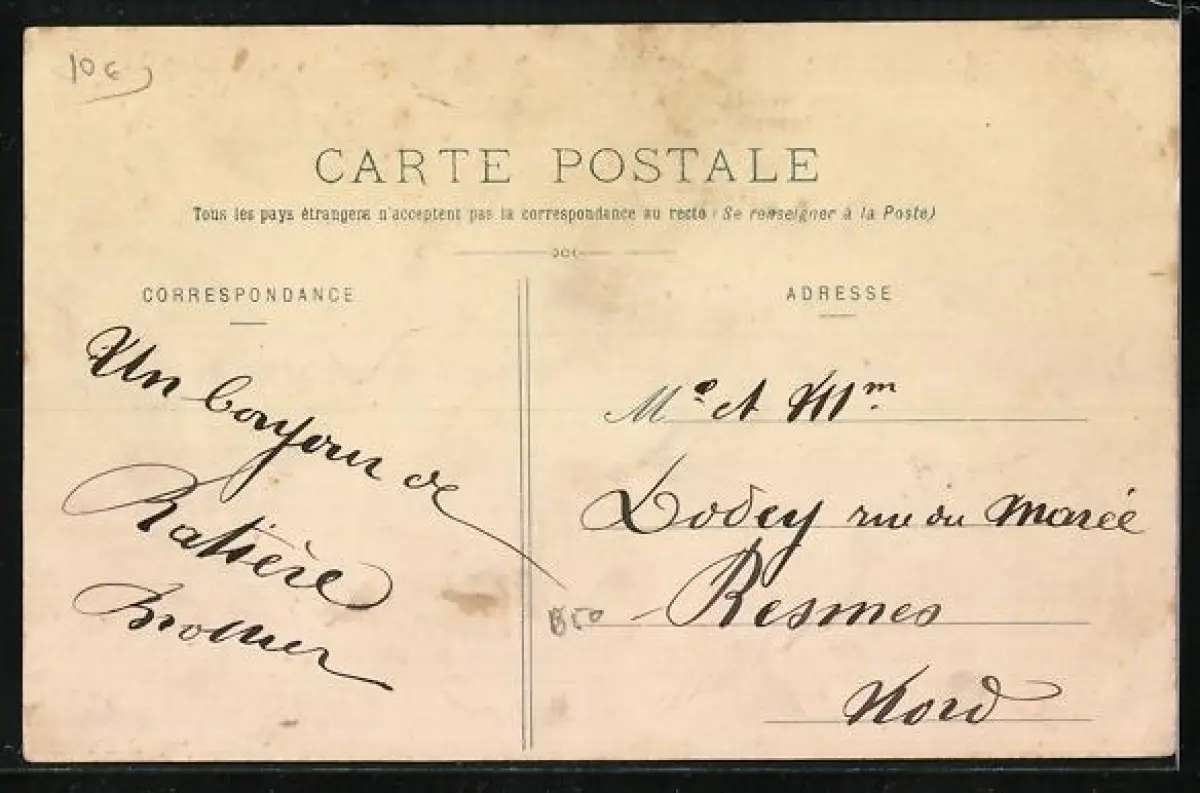 10 €
CARTE POSTALE
Tous les pays étrangers n'acceptent pas la correspondance au recto (Se renseigner à la Poste)
CORRESPONDANCE
Un bonjour de
Ratière
ADRESSE
Mr et Mm
Dodey rue du Marée
Resmes
Nord